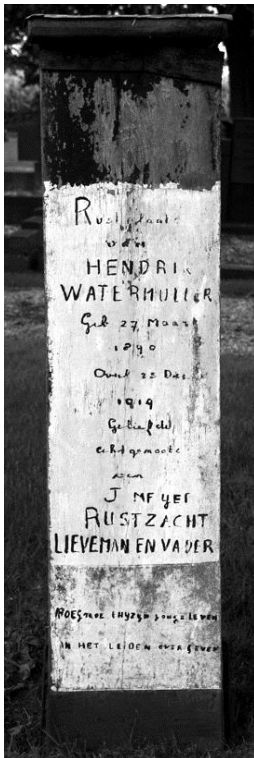 Rustplaats
van
HENDRIK
WATERMULLER
Geb 27 Maart
1890
Overl 22 Dec
1919
Geliefde
echtgenoote
van
J MEYER
RUSTZACHT
LIEVEMAN EN VADER
HIJ ZIJN JONGE LEVEN
IN HET LEIDEN OVERGEVEN